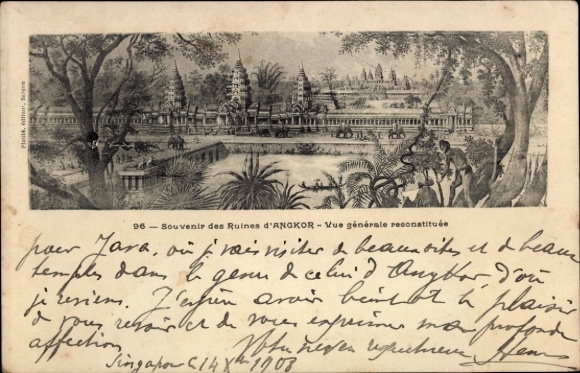 Planté, éditeur, Saïgon
96 — Souvenir des Ruines d'ANGKOR - Vue générale reconstituée
pour Java, où je vais visiter de beaux sites et de beaux
temples dans le genre de celui d'Angkor, d'où
je reviens. J'espère avoir bientôt le plaisir
de vous revoir et de vous exprimer ma profonde
affection.
Votre neveu respectueux
Singapour 14 Xbre 1908